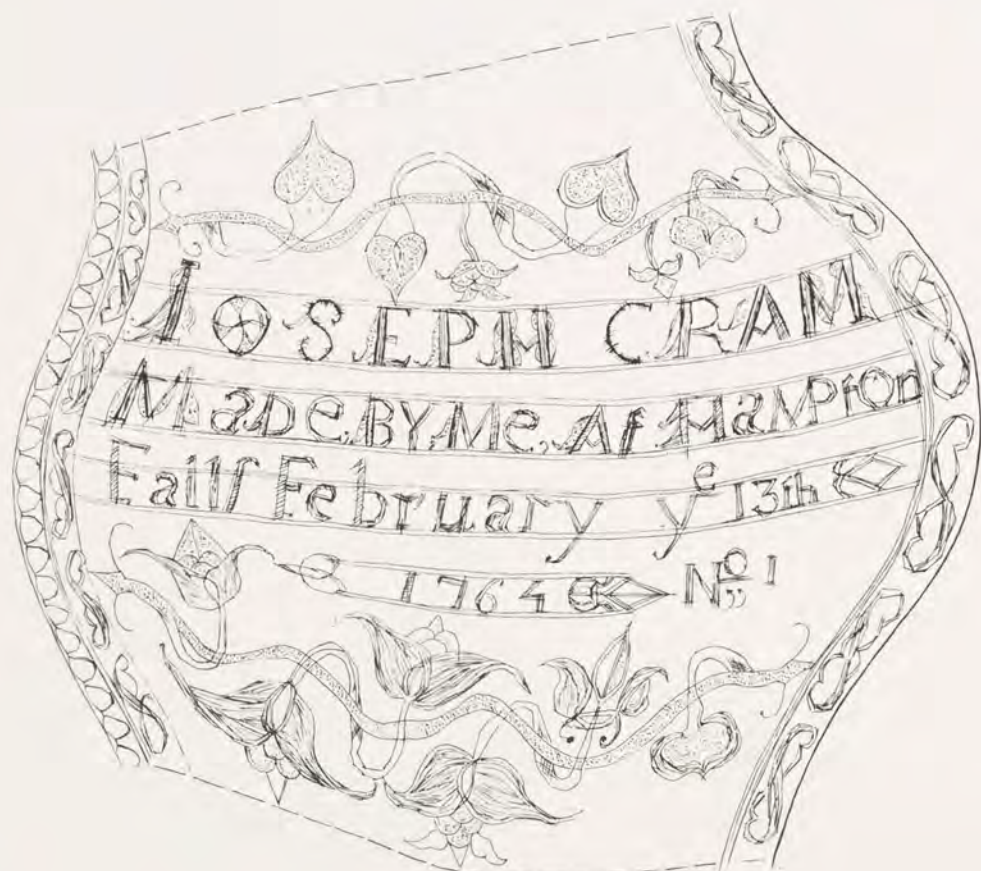 IOSEPH CRAM
MaDe BY Me At HaMPtOn
Falls February yᵉ 13th
1764 Nº 1